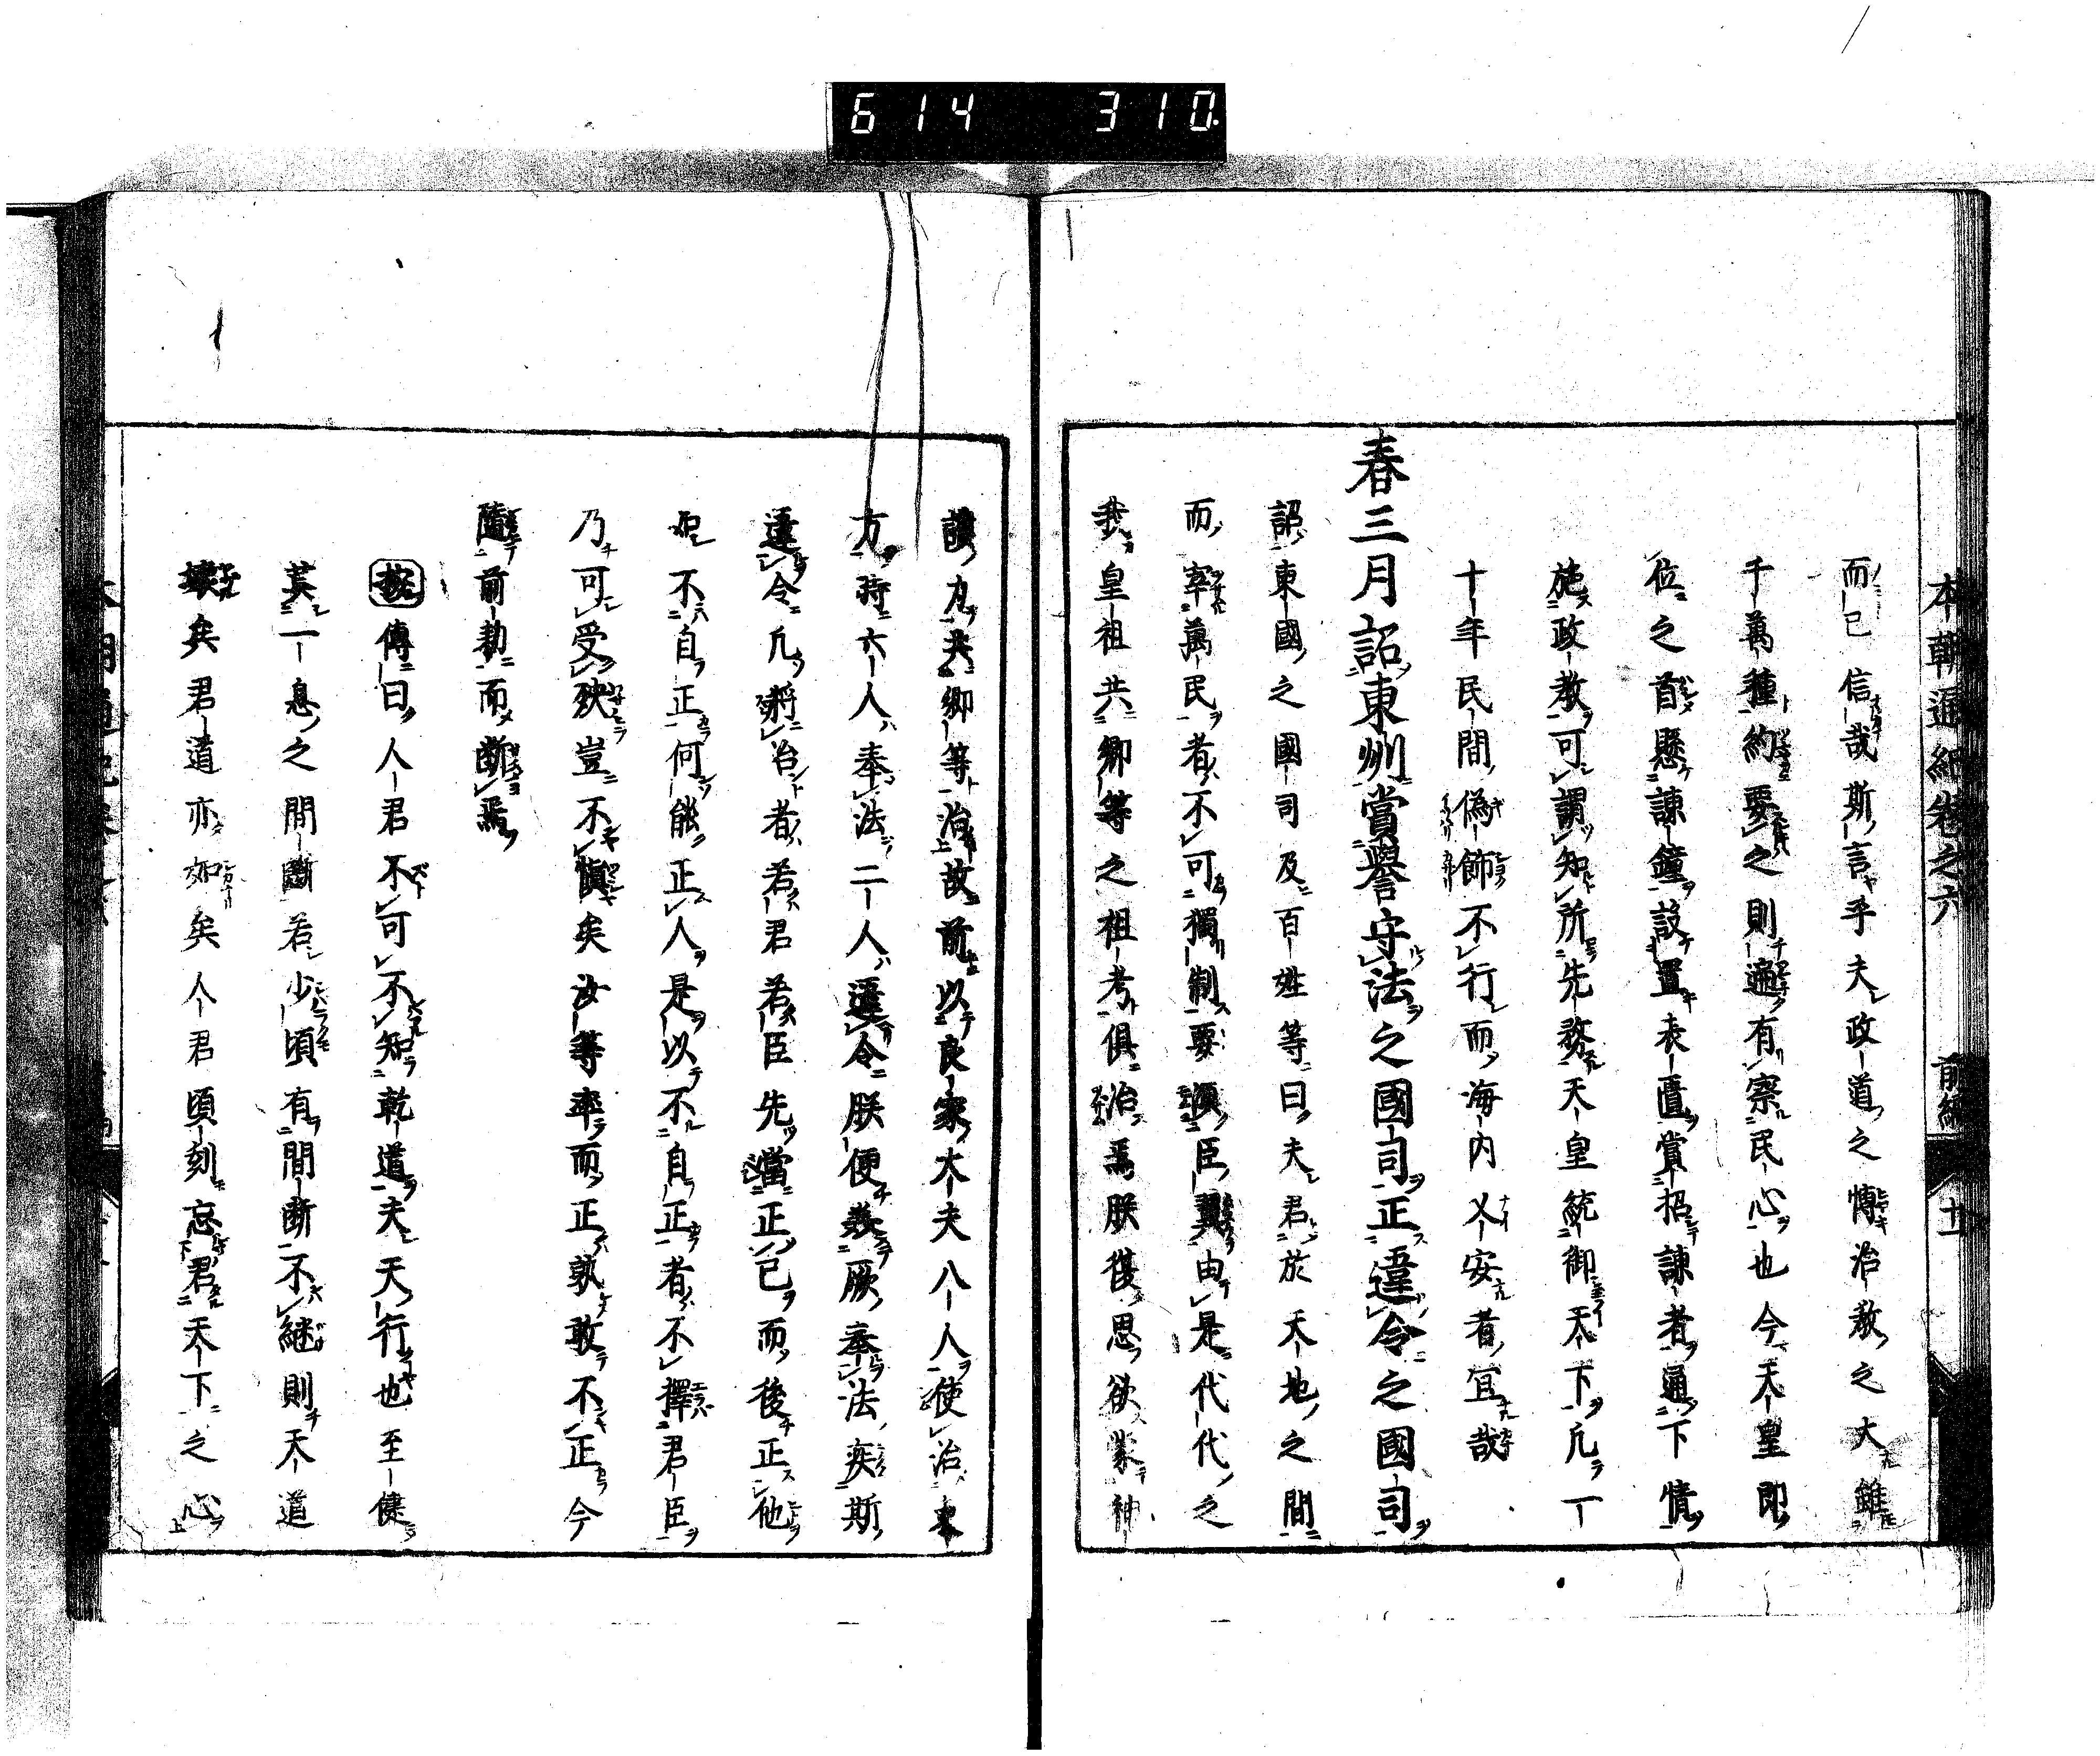 614 310
本朝通紀卷之六 前編 十一
而已信哉斯言乎夫政道之愽治敎之大雖
千萬種約要之則遍有察民心也今天皇即
位之首懸諫鐘設置表匱賞招諫者通下情
施政教可謂知所先務天皇統御天下凡一
十年民間偽飾不行而海内乂安者宜哉
春三月詔東州賞譽守法之國司正違令之國司
詔東國之國司及百姓等曰夫君於天地之間
而宰萬民者不可獨制要須臣翼由是代代之
我皇祖共卿等之祖考俱治焉朕復思欲蒙神
護力共卿等治故前以良家大夫八人使治東
方時六人奉法二人違令朕便美厥奉法疾斯
違令凡將治者若君若臣先當正己而後正他
如不自正何能正人是以不自正者不擇君臣
乃可受殃豈不愼矣汝等率而正孰敢不正今
隨前勅而斷焉
傳曰人君不可不知乾道夫天行也至健
其一息之間斷若少頃有間断不継則天道
壞矣君道亦如矣人君頃刻忘君天下之心